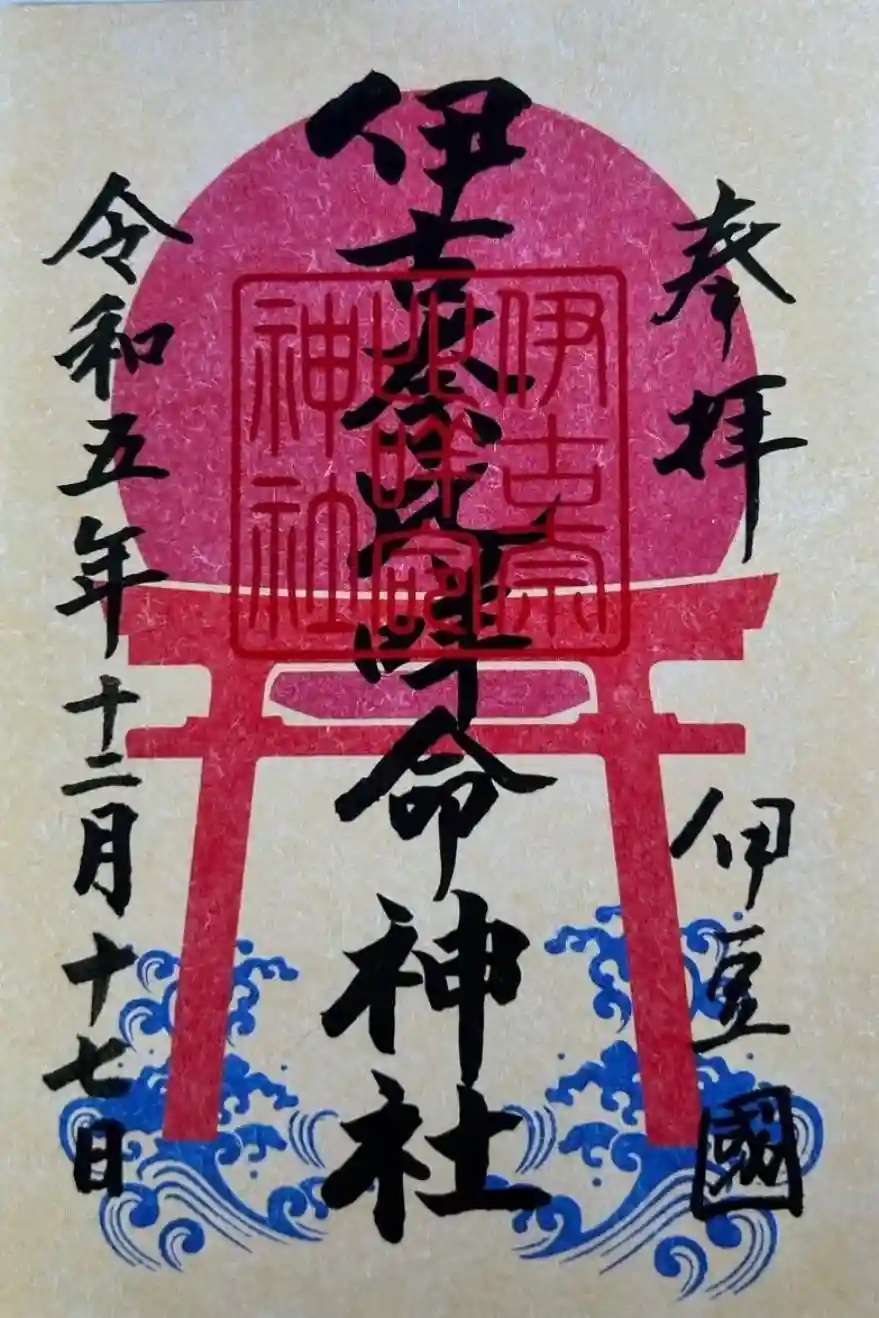 奉拝
伊豆國
伊古奈比咩命神社
伊古奈
比咩命
神社
令和五年十二月十七日